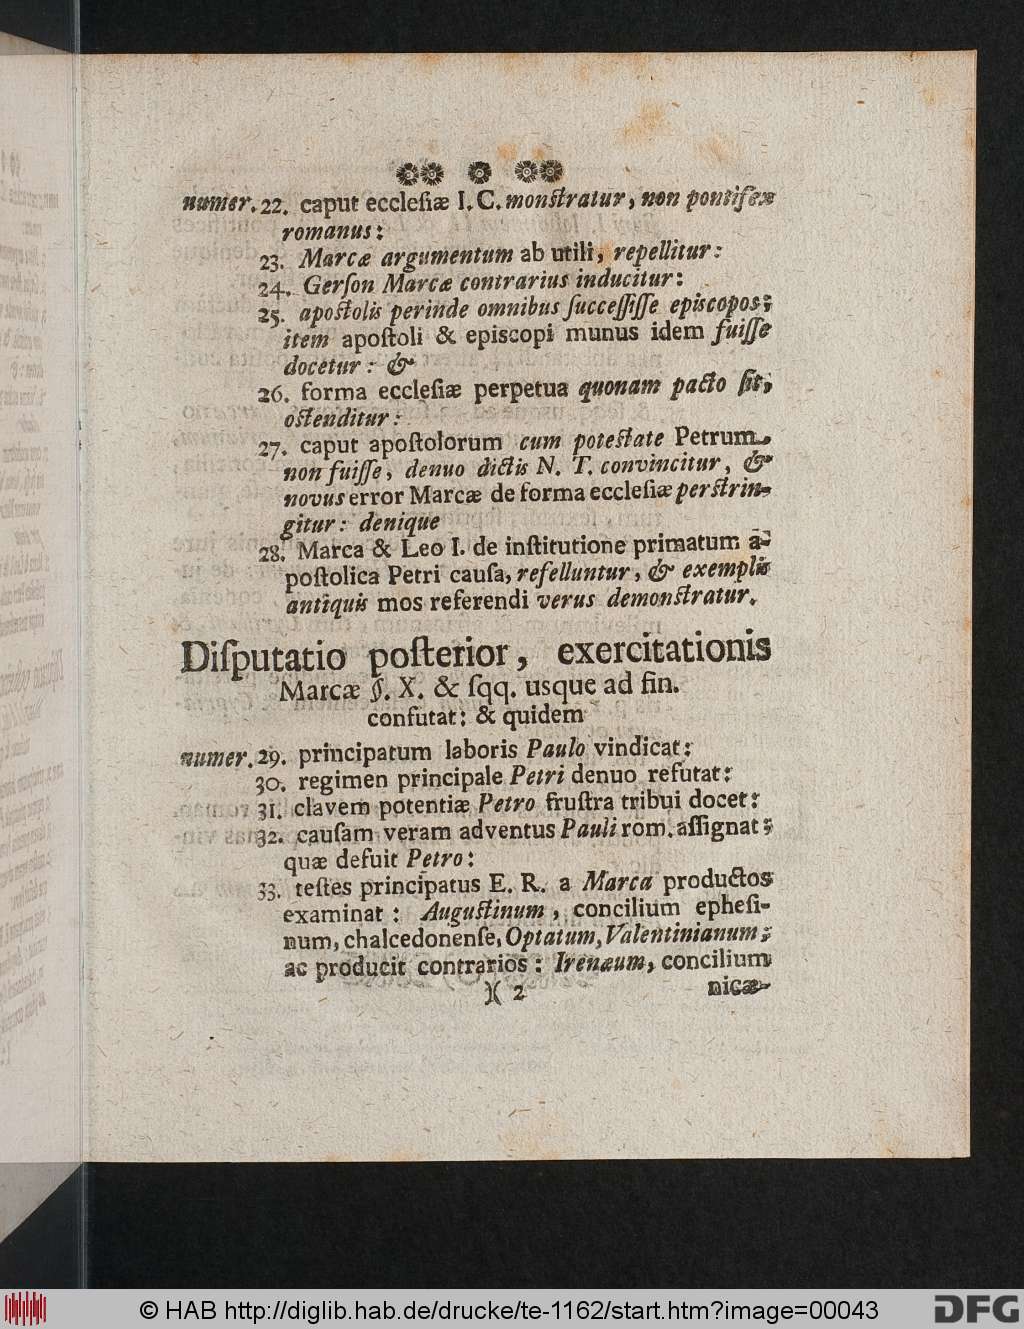 numer. 22. caput ecclesiæ I. C. monstratur, non pontifex
romanus:
23. Marcæ argumentum ab utili, repellitur:
24. Gerſon Marcæ contrarius inducitur:
25. apoſtolis perinde omnibus ſucceſſiſſe epiſcopos;
item apoſtoli & epiſcopi munus idem fuiſſe
docetur: &
26. forma eccleſiæ perpetua quonam pacto ſit,
oſtenditur:
27. caput apoſtolorum cum poteſtate Petrum
non fuiſſe, denuo dictis N. T. convincitur, &
novus error Marcæ de forma eccleſiæ perſtrin-
gitur: denique
28. Marca & Leo I. de inſtitutione primatum a-
poſtolica Petri cauſa, refelluntur, & exemplis
antiquis mos referendi verus demonſtratur.
Diſputatio poſterior, exercitationis
Marcæ §. X. & ſqq. usque ad fin.
confutat: & quidem
numer. 29. principatum laboris Paulo vindicat:
30. regimen principale Petri denuo refutat:
31. clavem potentiæ Petro fruſtra tribui docet:
32. cauſam veram adventus Pauli rom. aſſignat;
quæ defuit Petro:
33. teſtes principatus E. R. a Marca productos
examinat: Auguſtinum, concilium epheſi-
num, chalcedonenſe, Optatum, Valentinianum;
ac producit contrarios: Irenæum, concilium
)( 2 nicæ-
© HAB http://diglib.hab.de/drucke/te-1162/start.htm?image=00043 DFG